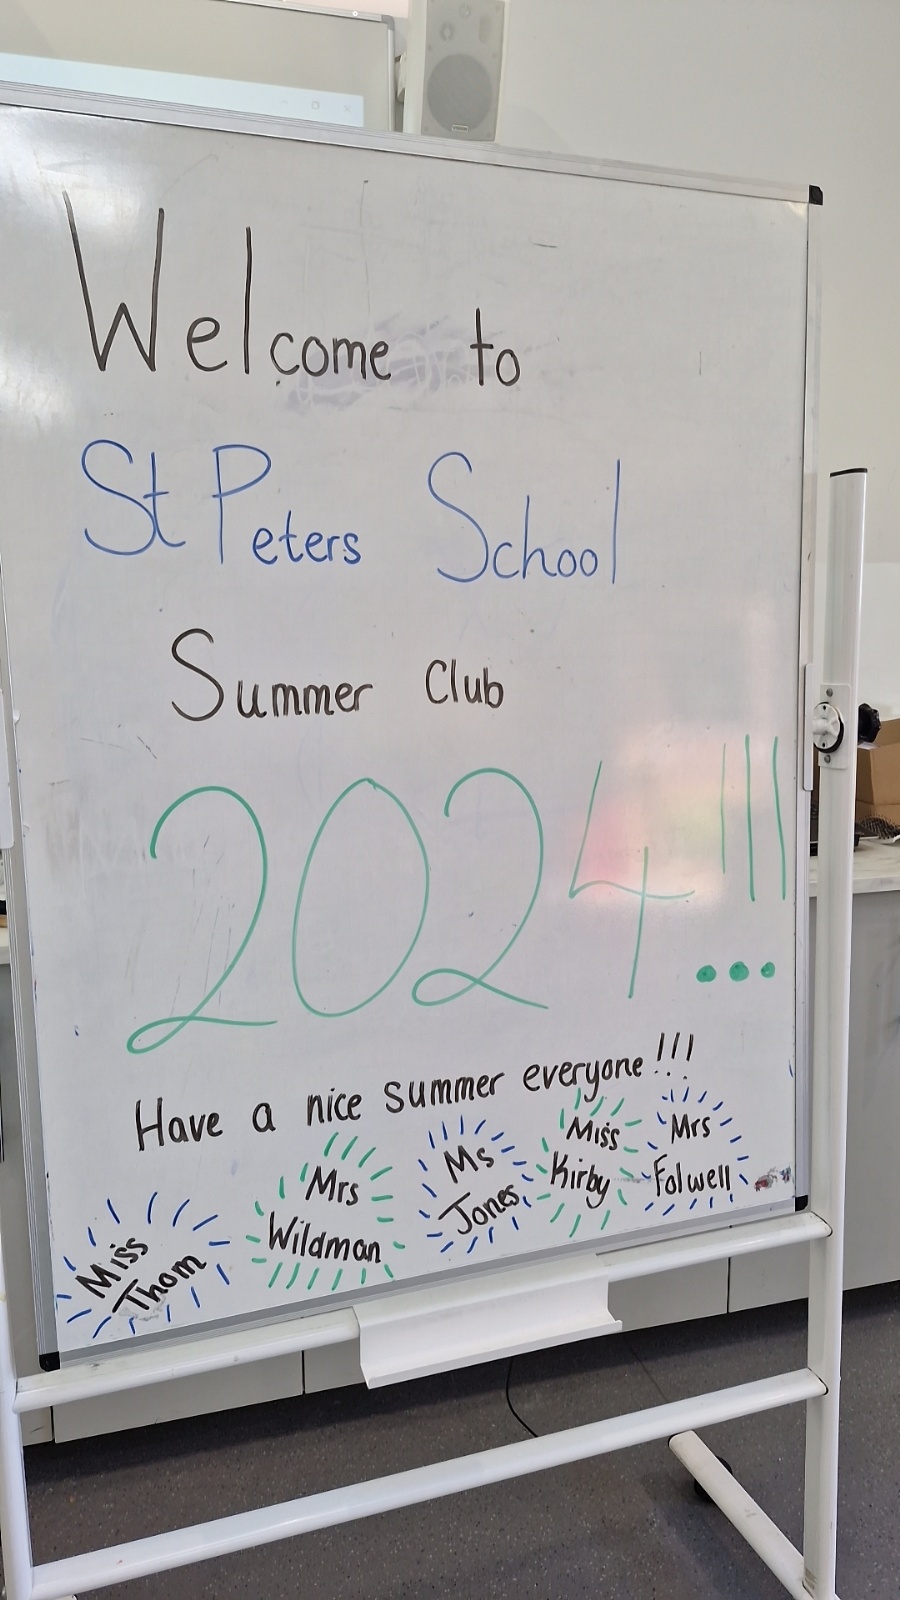 Welcome to
St Peters School
Summer Club
2024!!!
Have a nice summer everyone!!!
Miss
Thom
Mrs
Wildman
Ms
Jones
Miss
Kirby
Mrs
Folwell